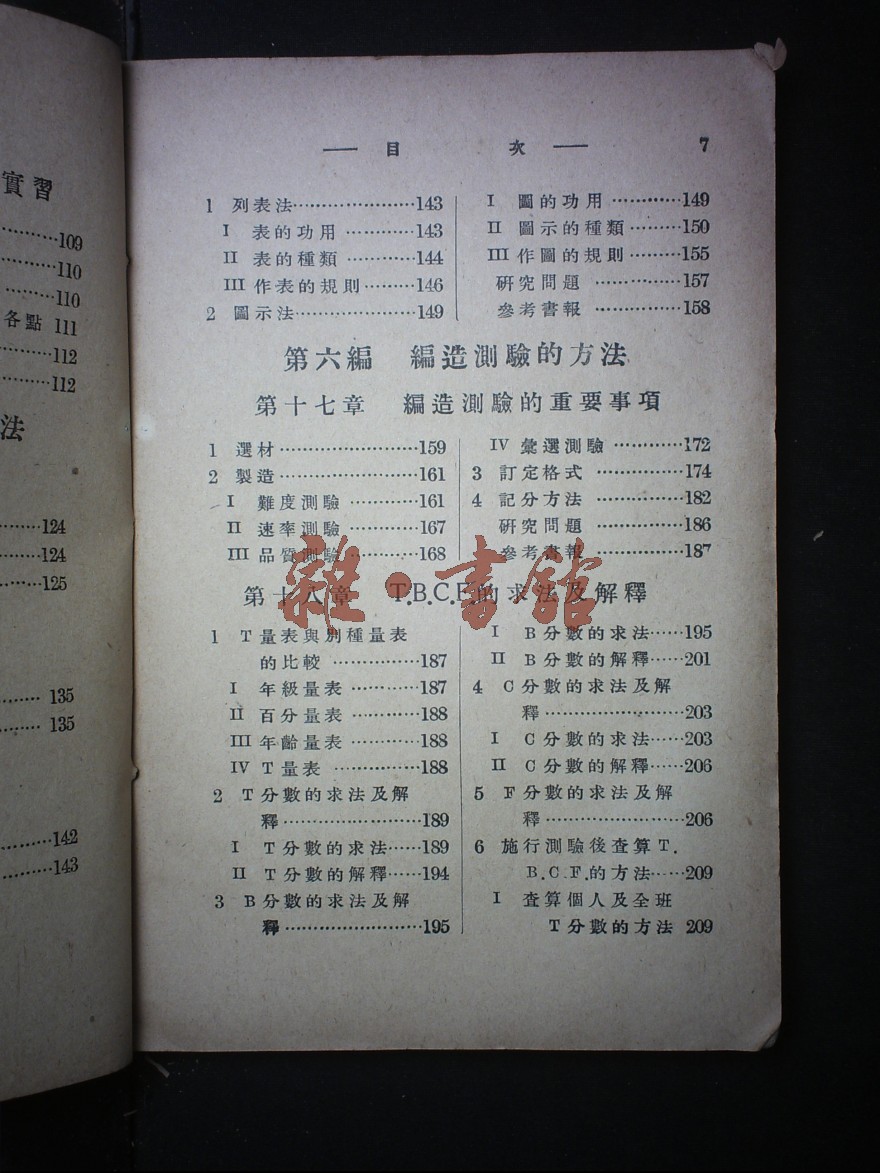 實習
109
110
110
各點 111
112
112
法
124
124
125
135
135
142
143
—— 目 次 —— 7
1 列表法……………………143
I 表的功用…………………143
II 表的種類………………144
III 作表的規則………146
2 圖示法……………………149
I 圖的功用……………149
II 圖示的種類…………150
III 作圖的規則…………155
研究問題……………157
參考書報……………158
第六編 編造測驗的方法
第十七章 編造測驗的重要事項
1 選材………………………159
2 製造………………………161
I 難度測驗………………161
II 速率測驗………………167
III 品質測驗………………168
IV 彙選測驗……………172
3 訂定格式………………174
4 記分方法………………182
研究問題………………186
參考書報………………187
第十八章 T.B.C.F.的求法及解釋
1 T量表與別種量表
的比較………………187
I 年級量表……………187
II 百分量表……………188
III 年齡量表……………188
IV T量表………………188
2 T分數的求法及解
釋………………………189
I T分數的求法……189
II T分數的解釋……194
3 B分數的求法及解
釋………………………195
I B分數的求法……195
II B分數的解釋……201
4 C分數的求法及解
釋………………………203
I C分數的求法……203
II C分數的解釋……206
5 F分數的求法及解
釋………………………206
6 施行測驗後查算T.
B.C.F.的方法……209
I 查算個人及全班
T分數的方法 209
雜·書館